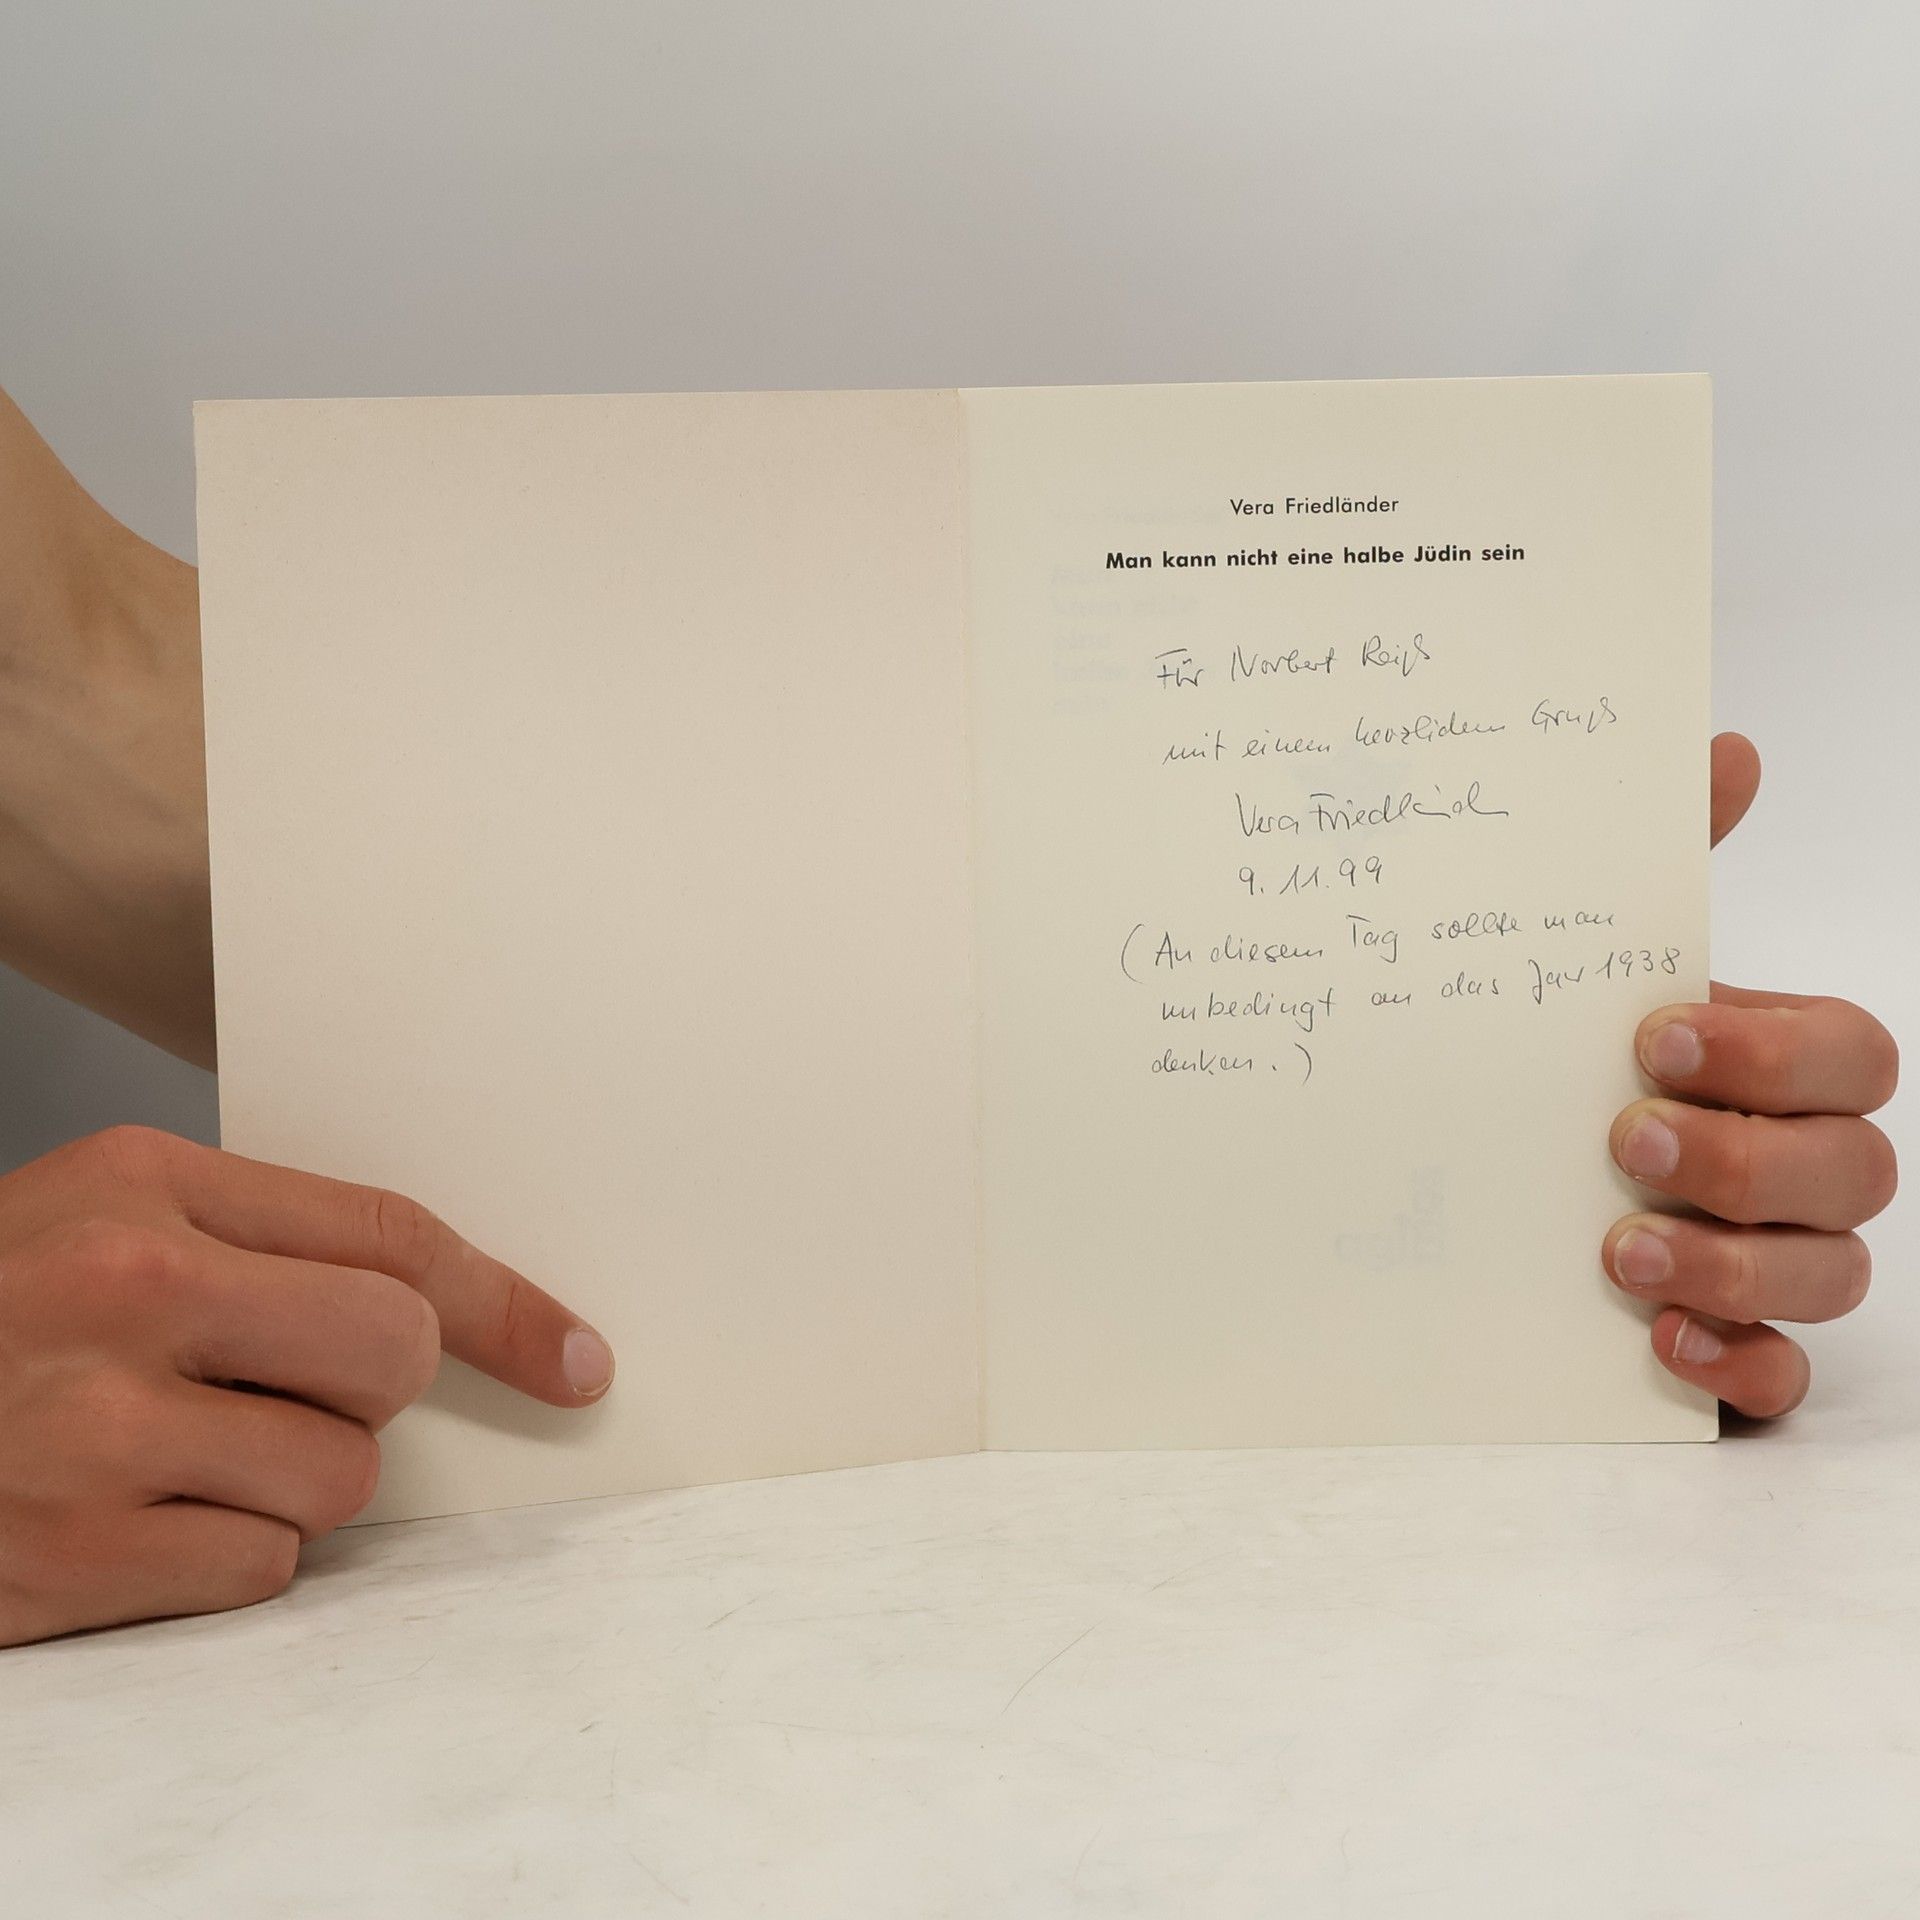 Vera Friedländer
Man kann nicht eine halbe Jüdin sein
Für Norbert Reiß
mit einem herzlichem Gruß
Vera Friedländ
9.11.99
(An diesem Tag sollte man
unbedingt an das Jahr 1938
denken.)